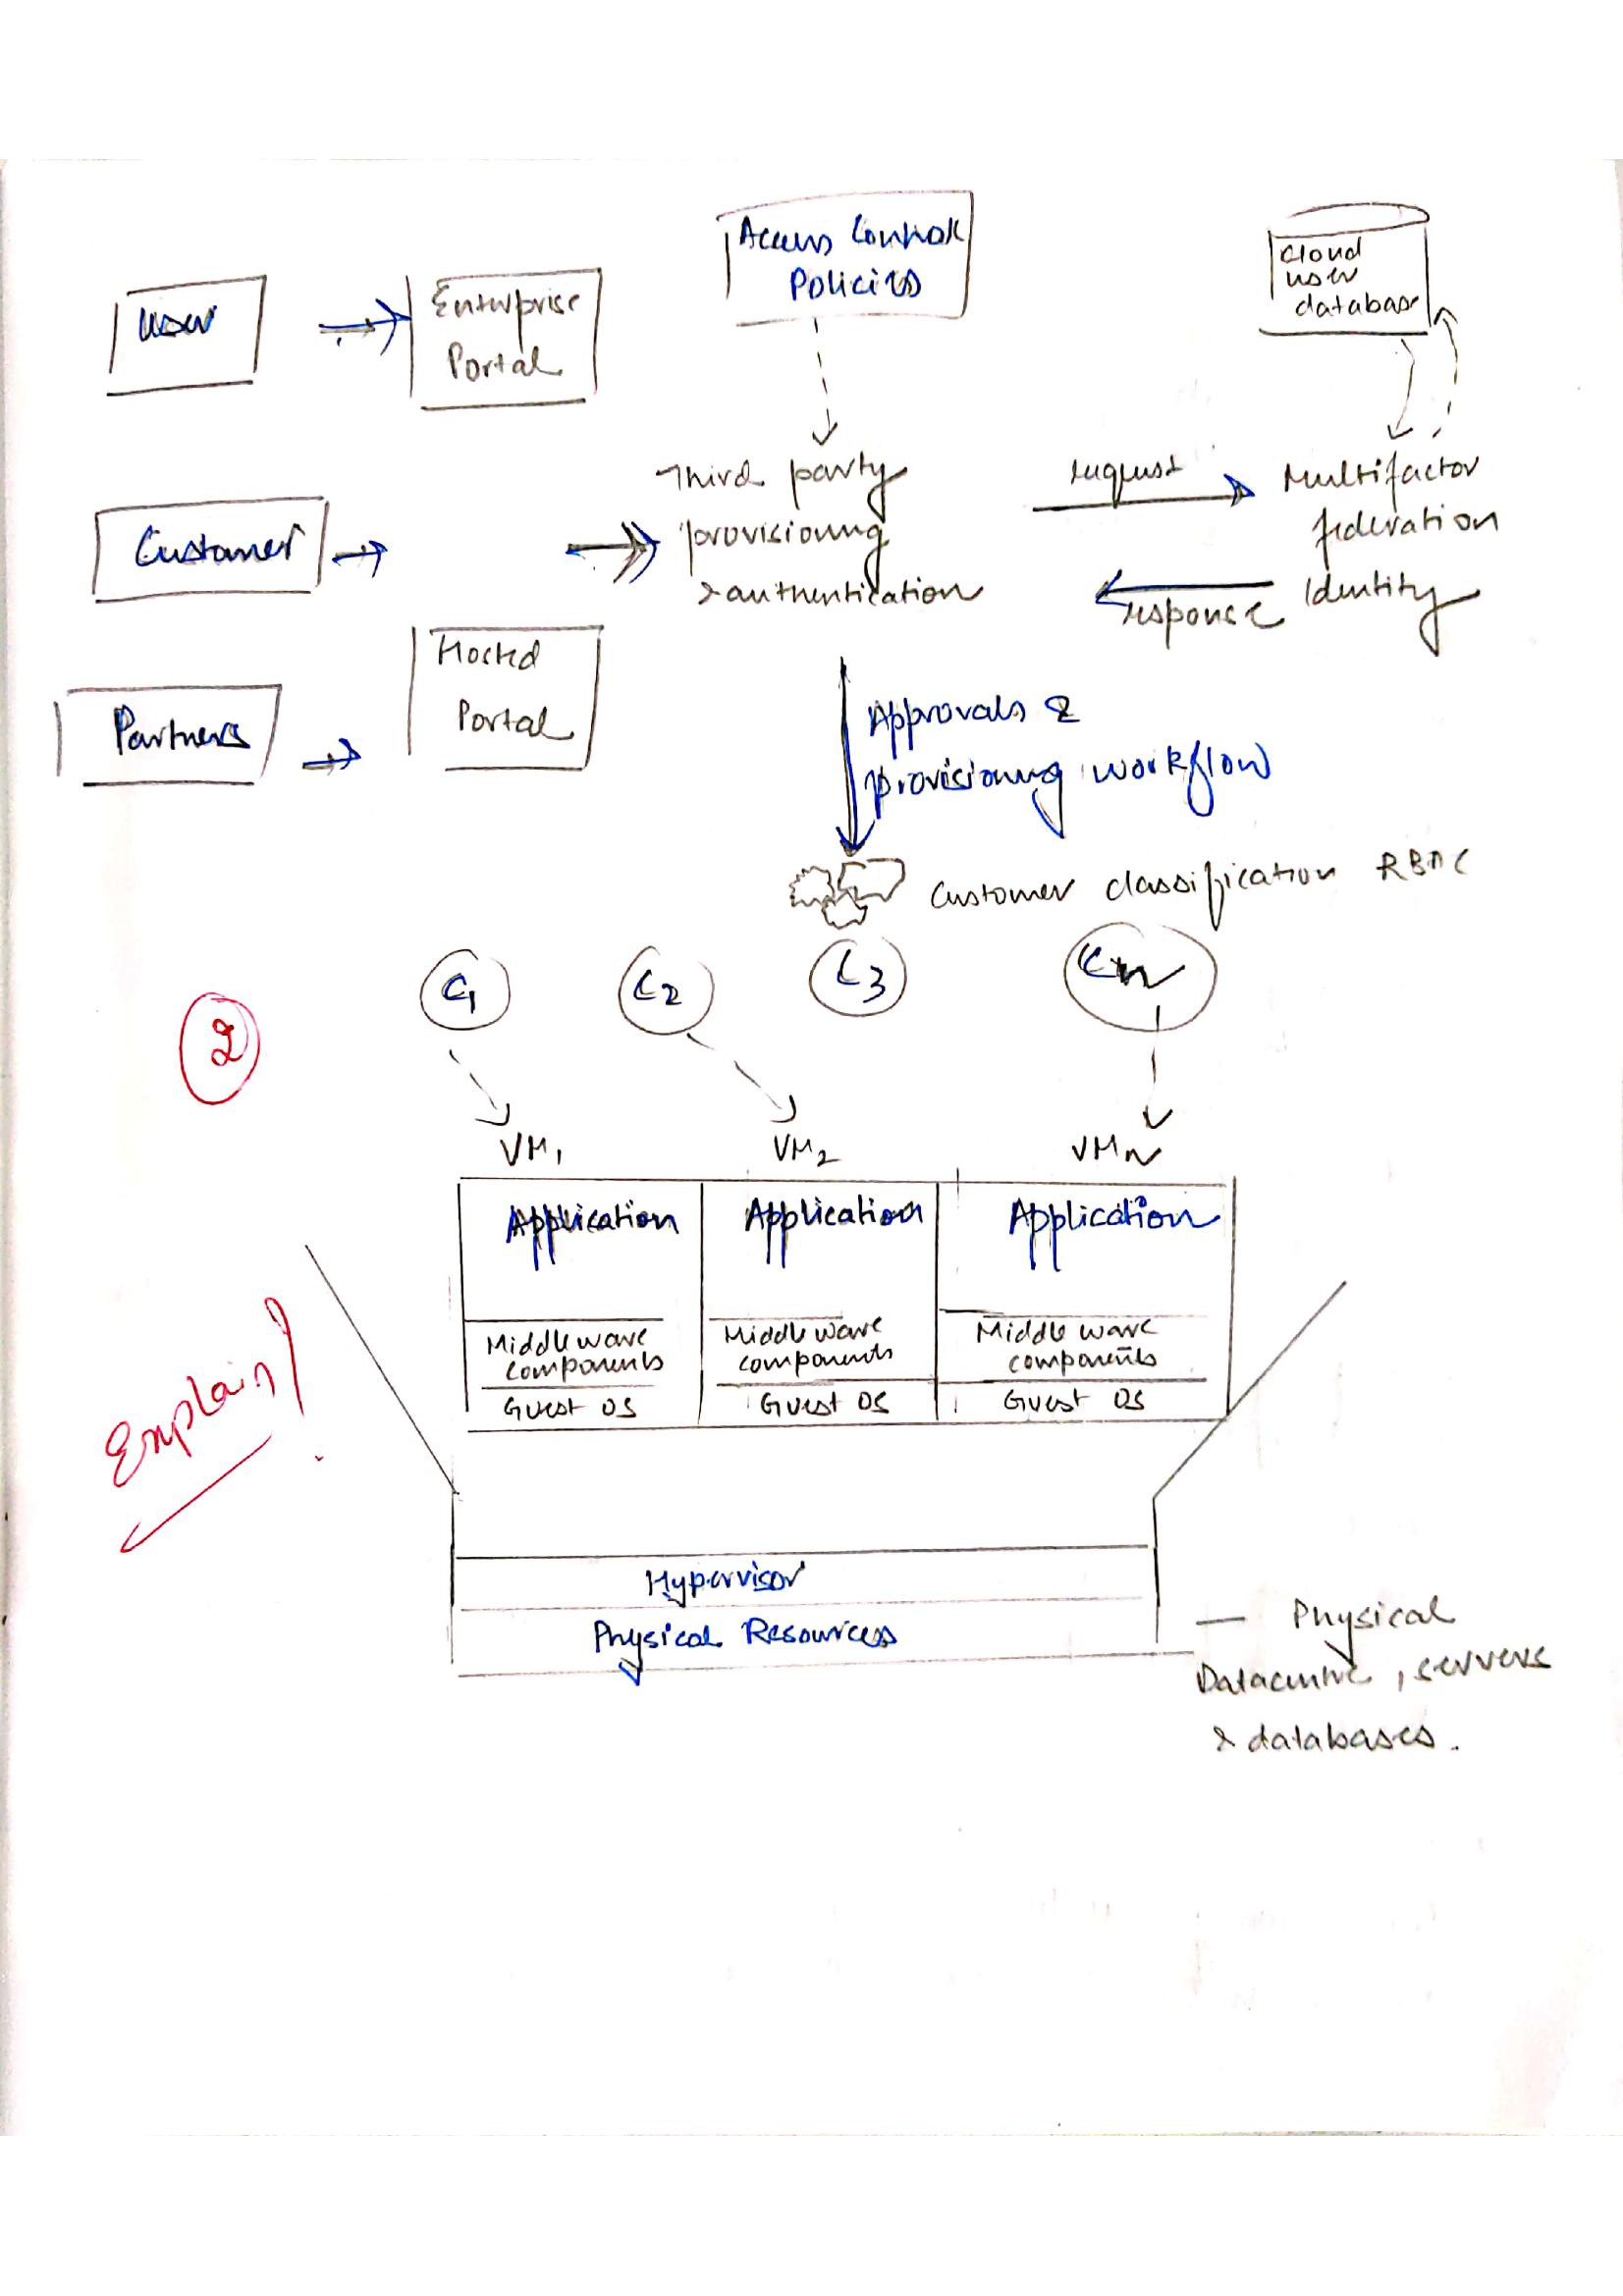 User
Enterprise
Portal
Access Control
Policies
Cloud
user
database
Customer
Third party
provisioning
& authentication
request
response
Multifactor
federation
Identity
Partners
Hosted
Portal
Approvals &
provisioning workflow
Customer classification RBAC
C1
C2
C3
Cn
2
VM1
VM2
VMN
Application
Application
Application
Middleware
components
Middleware
components
Middleware
components
Guest OS
Guest OS
Guest OS
Explain!
Hypervisor
Physical Resources
— Physical
Datacentre, servers
& databases.